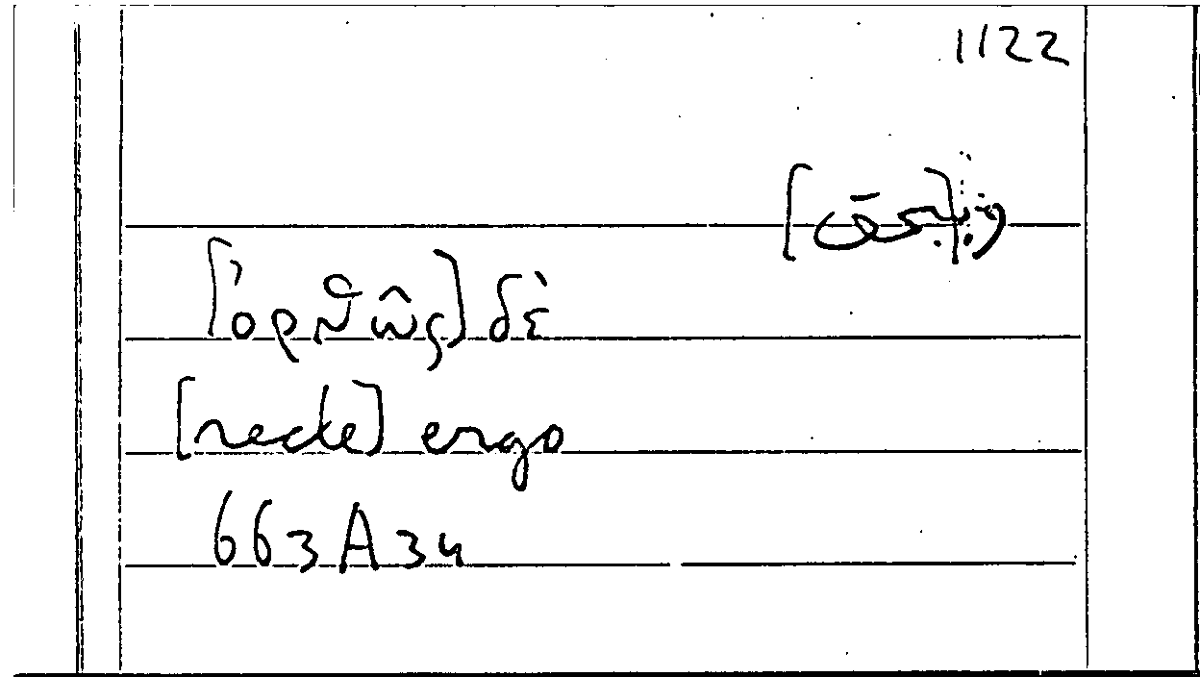 1122
و[بحق]
[ὀρθῶς] δὲ
[recte] ergo
663A34